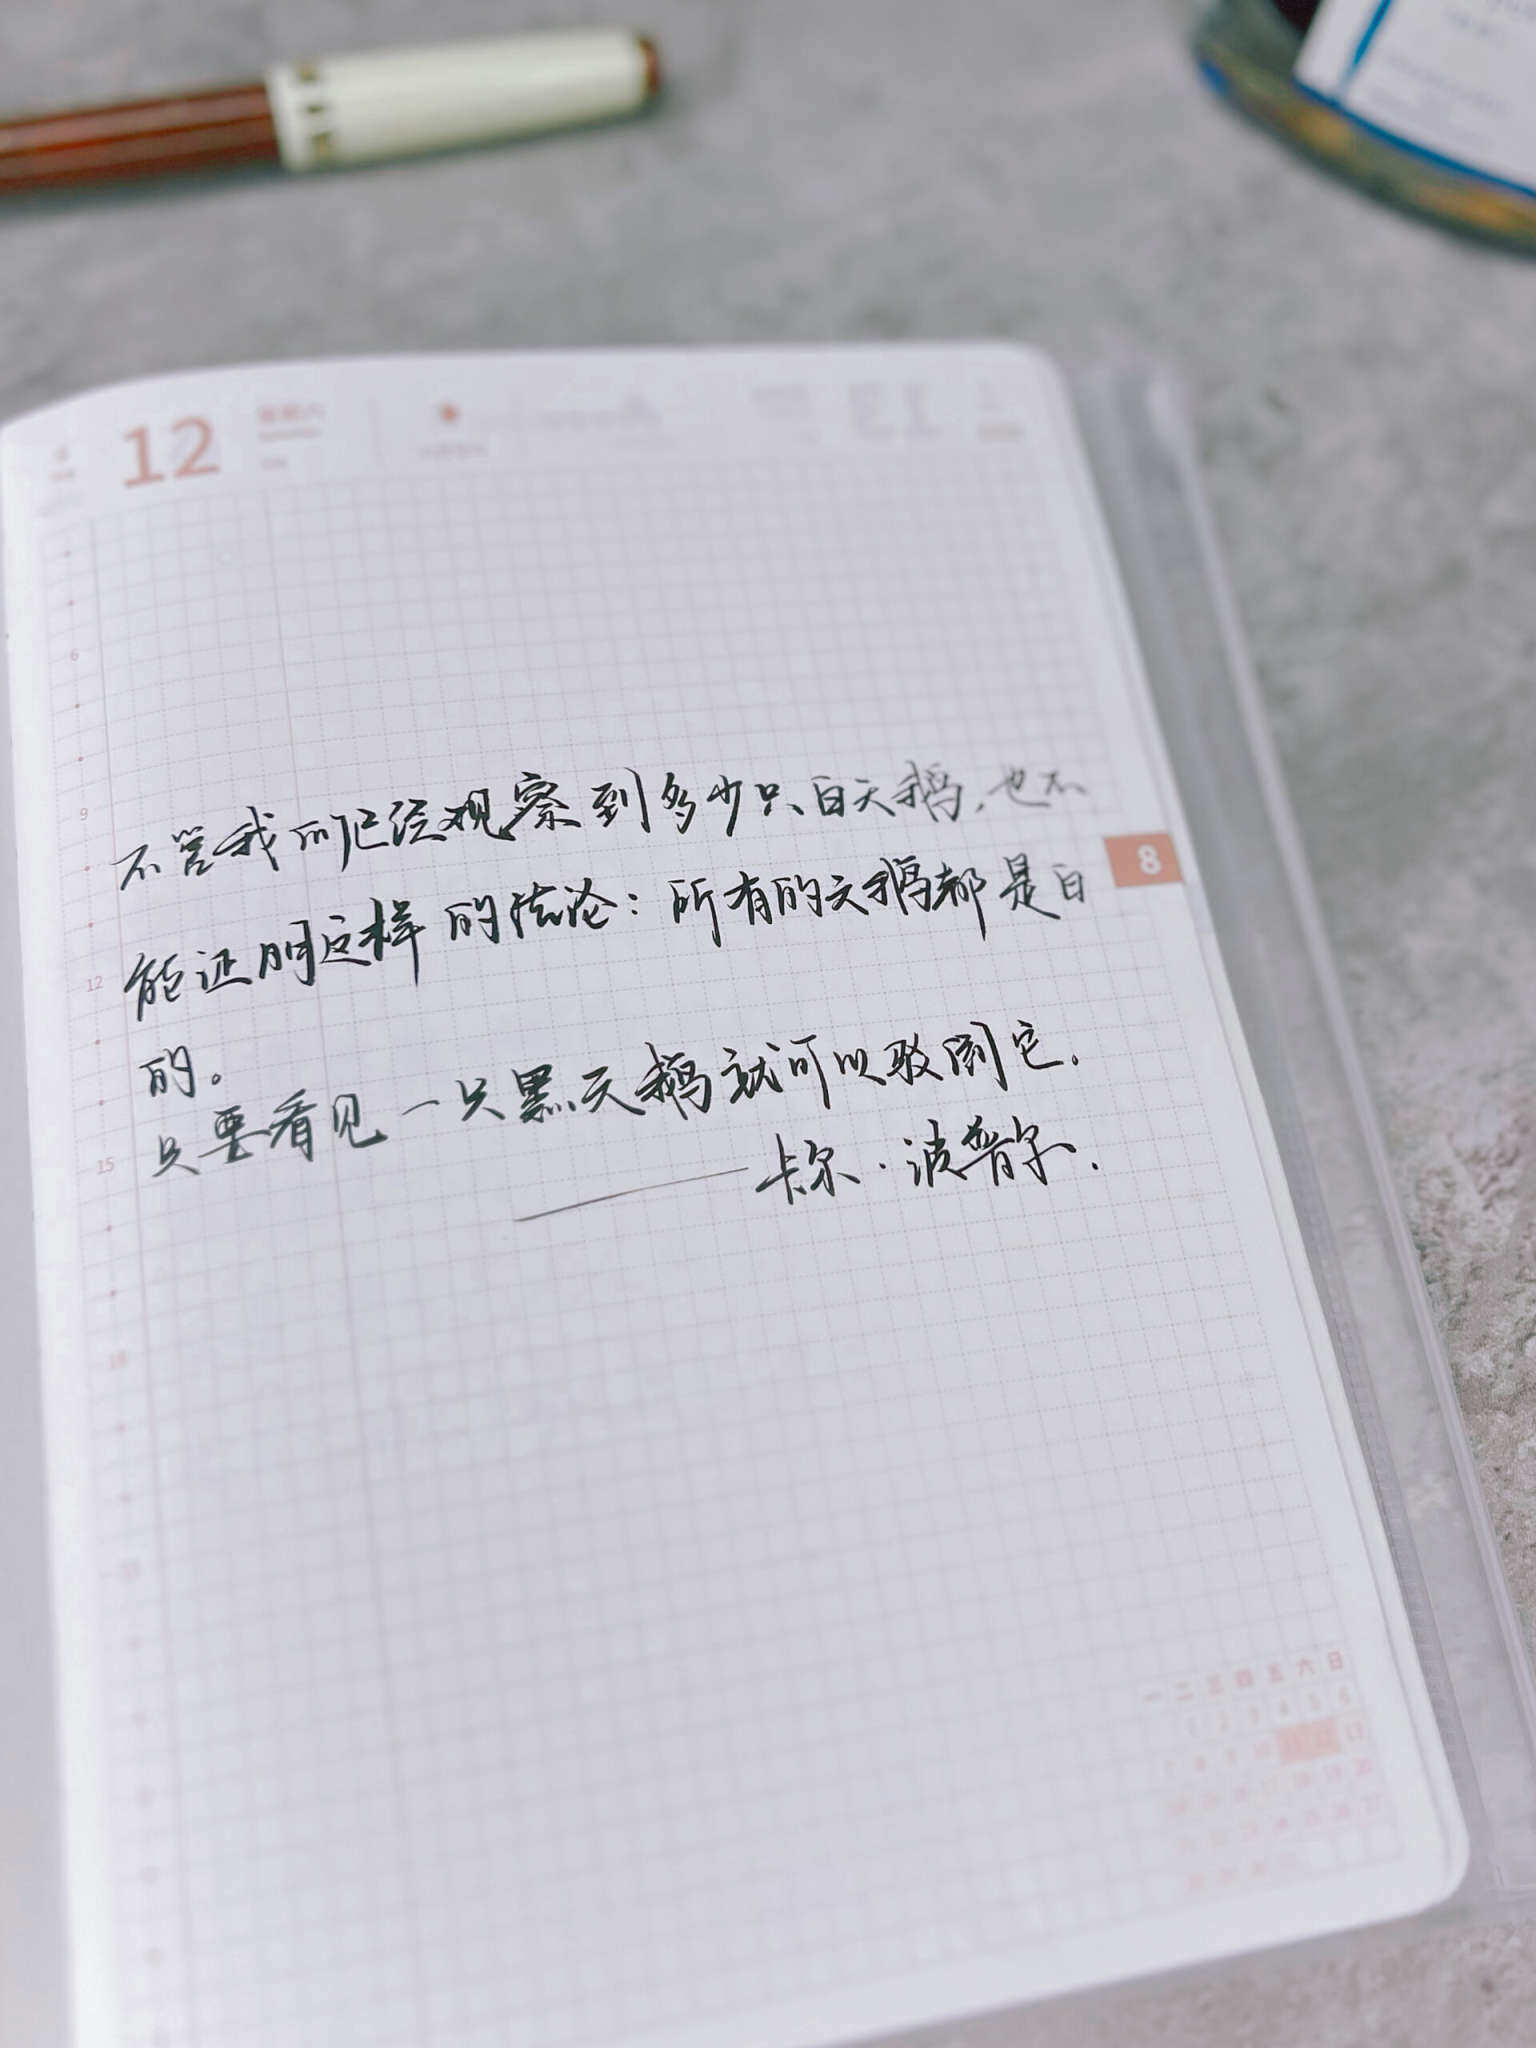 12
6
9
不管我们已经观察到多少只白天鹅,也不
8
能证明这样的结论:所有的天鹅都是白
12
的。
只要看见一只黑天鹅就可以驳倒它.
15
——卡尔·波普尔.
18
一 二 三 四 五 六 日